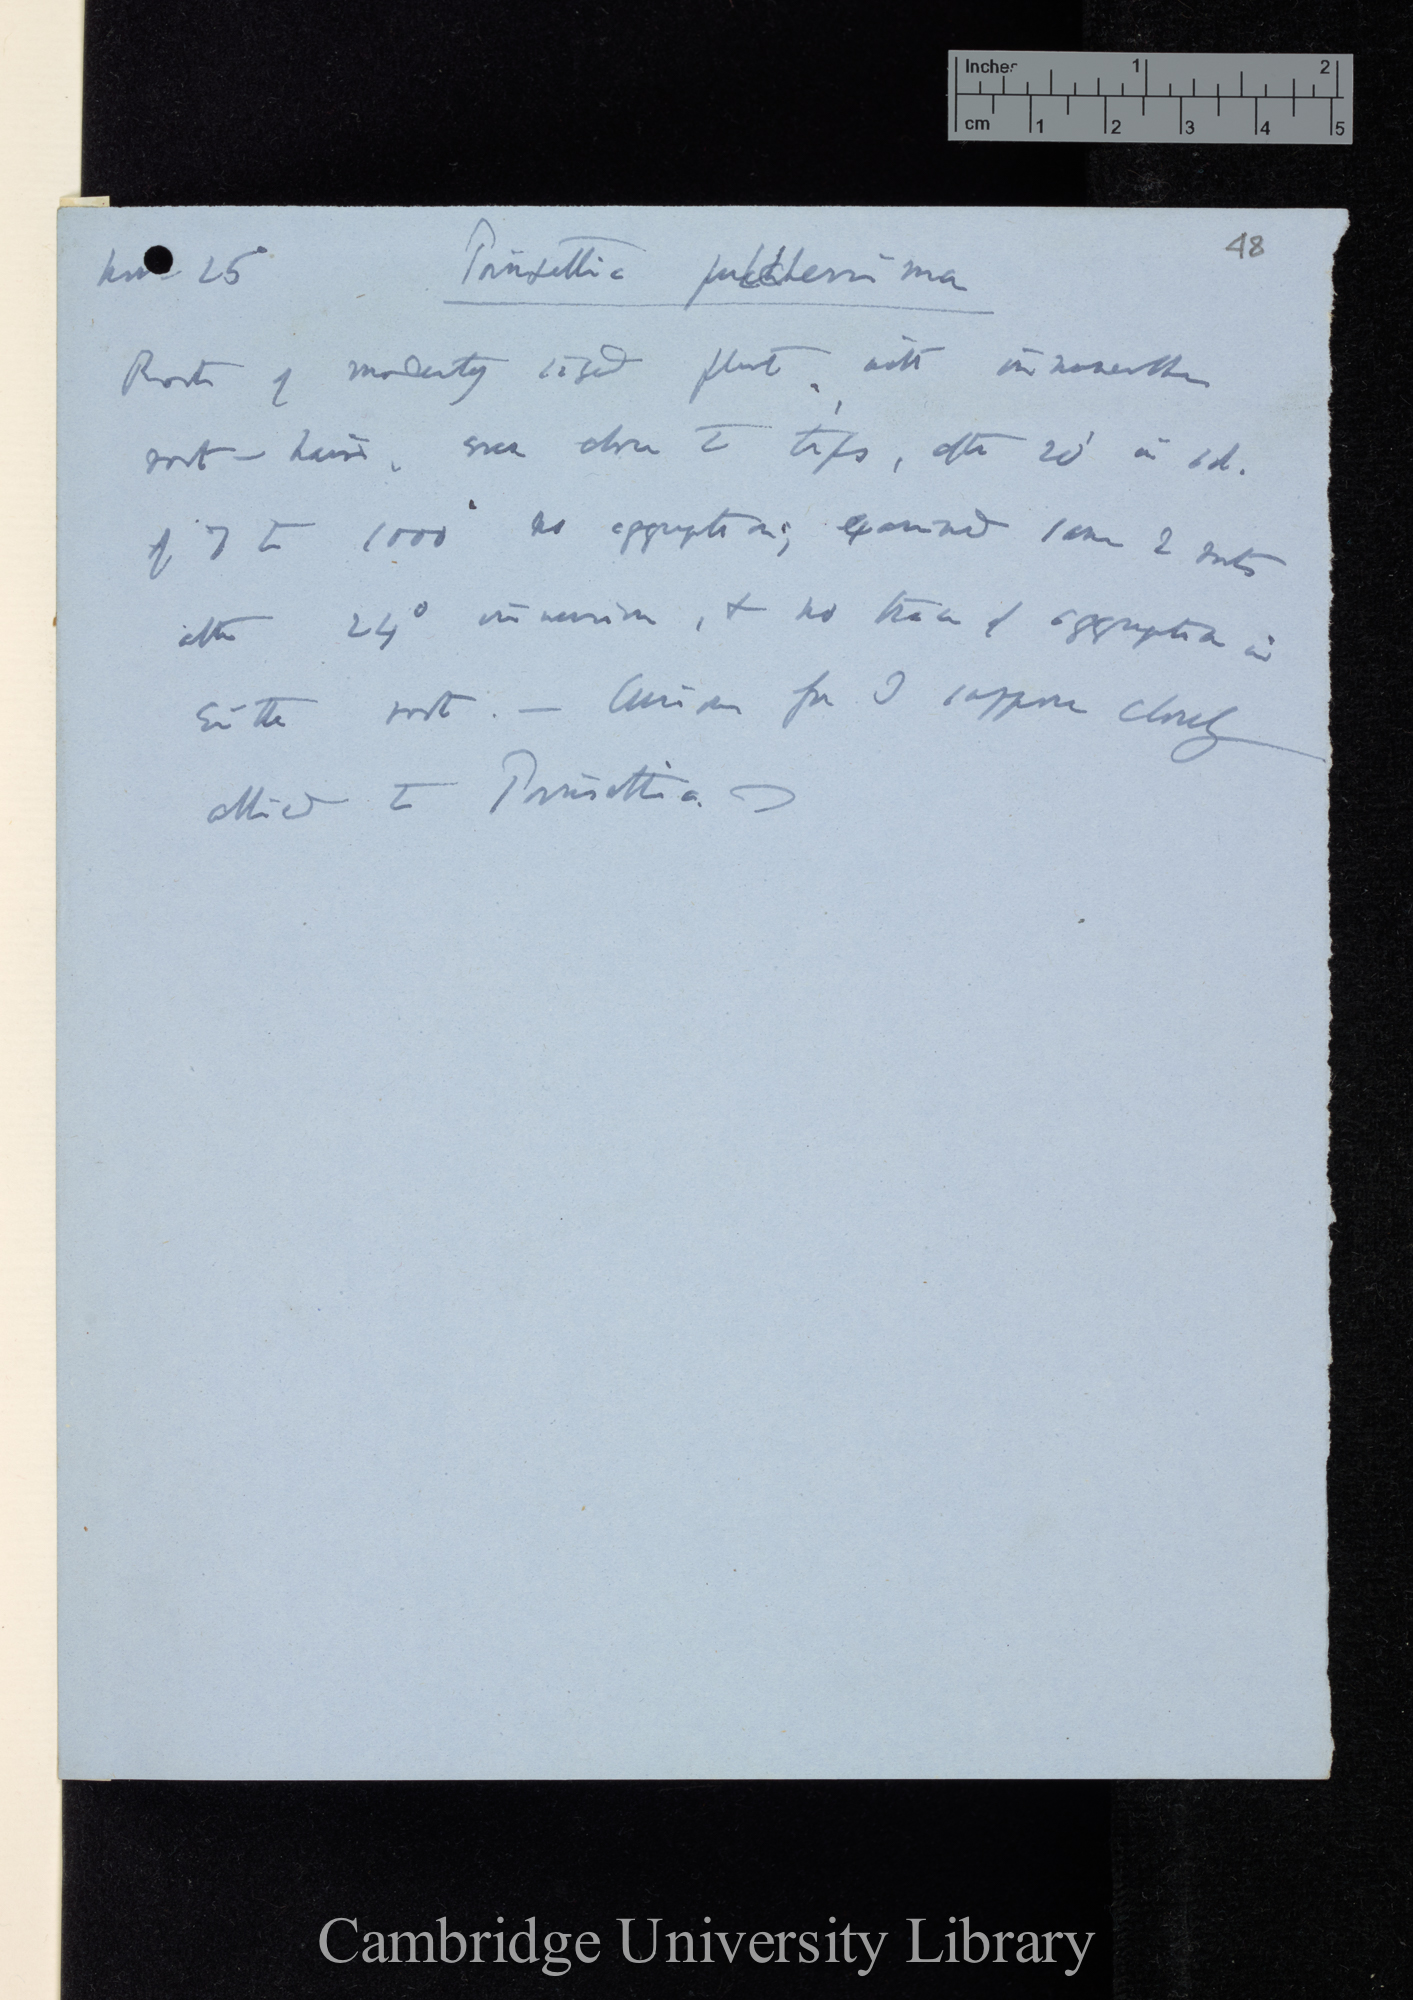 Inches 1 2
cm 1 2 3 4 5
48
25 Poinsettia pulcherrima
Roots of moderately sized plant, with innumerable
root-hairs, even close to tips, after 20' in sol.
of 7 to 1000 no aggregation; examined same 2 roots
after 24° immersion, & no trace of aggregation in
either root. — Curious for I suppose closely
allied to Poinsettia.
Cambridge University Library